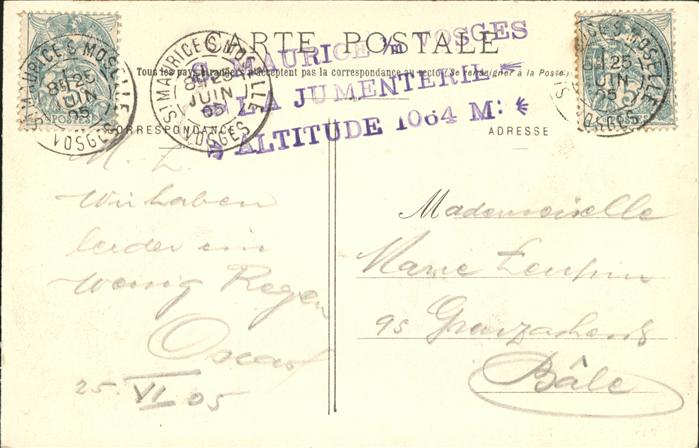 CARTE POSTALE
Tous les pays étrangers n'acceptent pas la correspondance au recto (Se renseigner à la Poste)
CORRESPONDANCE
ADRESSE
S. MAURICE s/m VOSGES
LA JUMENTERIE
ALTITUDE 1064 M:
ST MAURICE S MOSELLE
25
JUIN
05
VOSGES
ST MAURICE S MOSELLE
25
JUIN
05
VOSGES
MOSELLE
25
JUIN
05
VOSGES
M. L.
Wir haben
leider ein
wenig Regen
Oscar
25 VI 05
Mademoiselle
Marie
95
Bâle